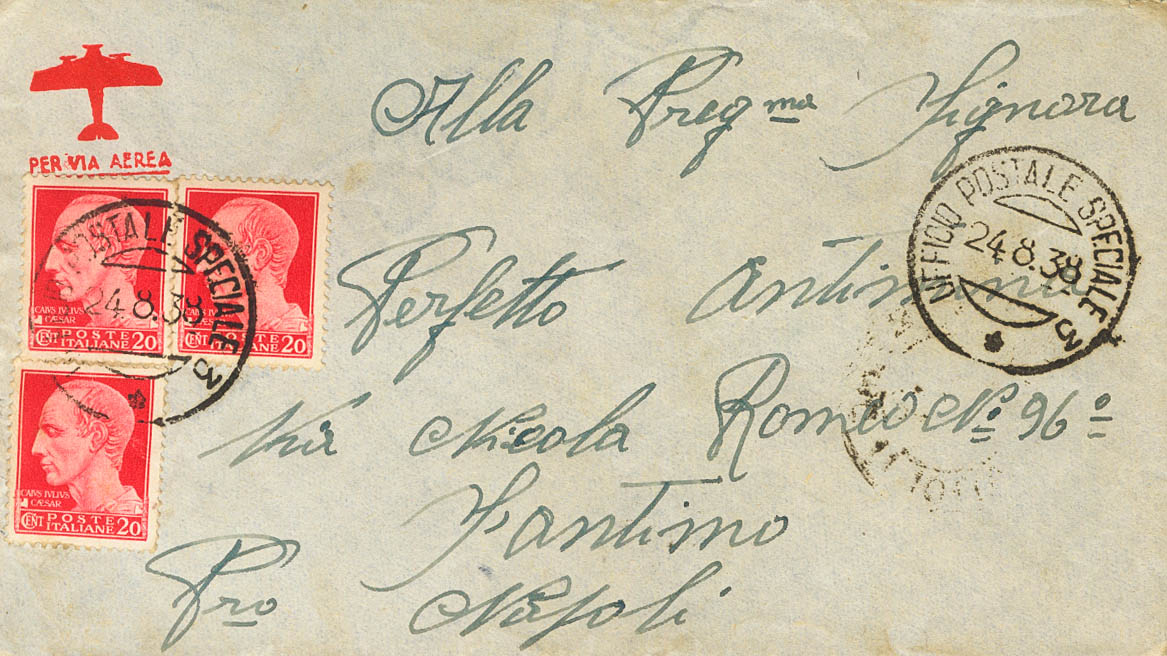 PER VIA AEREA
Alla Preg.ma Signora
Perfetto Antimina
Via Nicola Romeo No. 96o
S Antimo
Pro Napoli
UFFICIO POSTALE SPECIALE 3
24.8.38
POSTALE SPECIALE 3
24.8.38
CAIVS IVLIVS
CÆSAR
CENT POSTE ITALIANE 20
CENT POSTE ITALIANE 20
CAIVS IVLIVS
CÆSAR
CENT POSTE ITALIANE 20